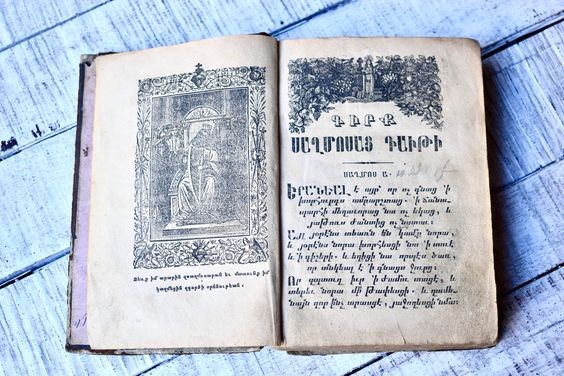 Ձեռք իմ արարին զսաղմոսարան եւ մատունք իմ
կազմեցին զգործի օրհնութեան.
ԳԻՐՔ
ՍԱՂՄՈՍԱՑ ԴԱՒԹԻ
ՍԱՂՄՈՍ Ա.
ԵՐԱՆԵԱԼ է այր՝ որ ոչ գնաց ՚ի
խորհուրդս ամպարշտաց. ՚ի ճանա֊
պարհի մեղաւորաց նա ոչ եկաց, և
յաթոռս ժանտից ոչ նստաւ։
Այլ յօրէնս տեառն են կամք նորա,
և յօրէնս նորա խորհեսցի նա ՚ի տուէ
և ՚ի գիշերի. և եղիցի նա որպէս ծառ,
որ տնկեալ է ՚ի գնացս ջուրց։
Որ զպտուղ իւր ՚ի ժամու տացէ, և
տերեւ նորա մի թափեսցի. և զամե֊
նայն զոր ինչ արասցէ, յաջողեսցի նմա։